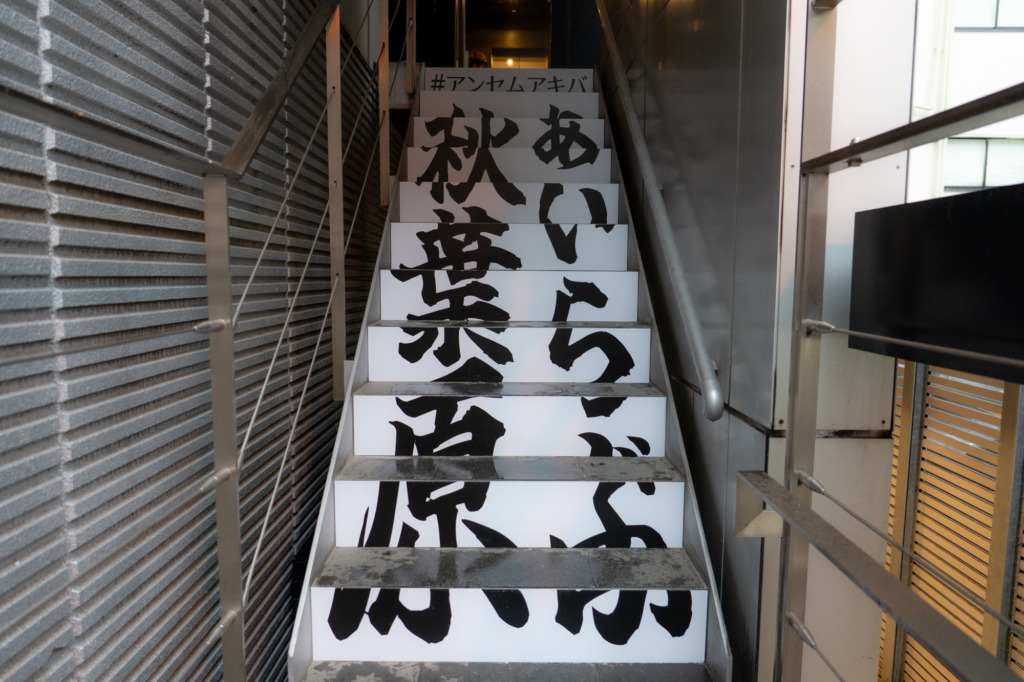 #アンセムアキバ
あいらぶ
秋葉原